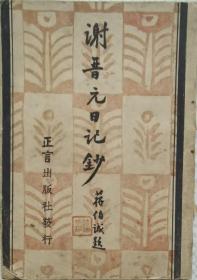 谢晋元日记钞
蒋伯诚题
正言出版社發行